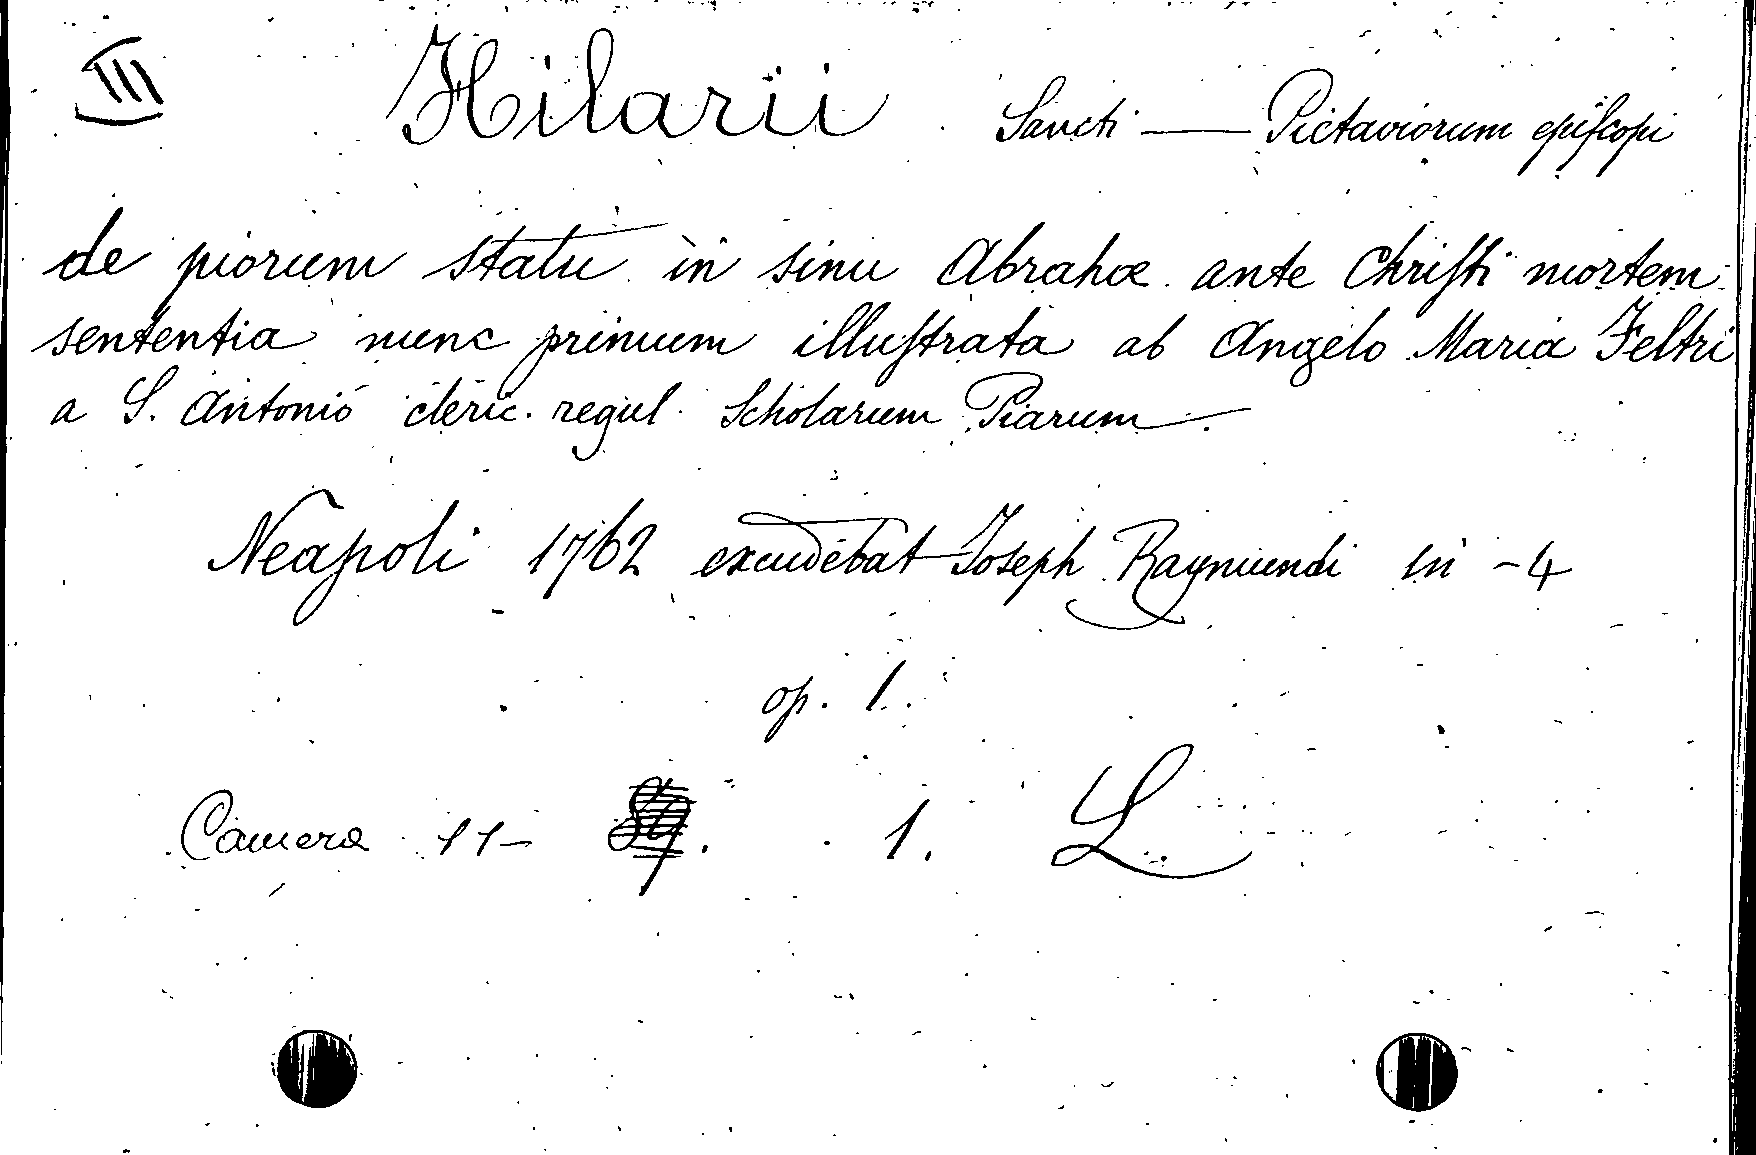 III Hilarii Sancti — Pictaviorum episcopi
de piorum statu in sinu Abrahæ ante Christi mortem
sententia nunc primum illustrata ab Angelo Maria Feltri
a S. Antonio cleric. regul. Scholarum Piarum.
Neapoli 1762 excudebat Joseph Raymundi in-4
op. 1.
Camera 11- 1. L